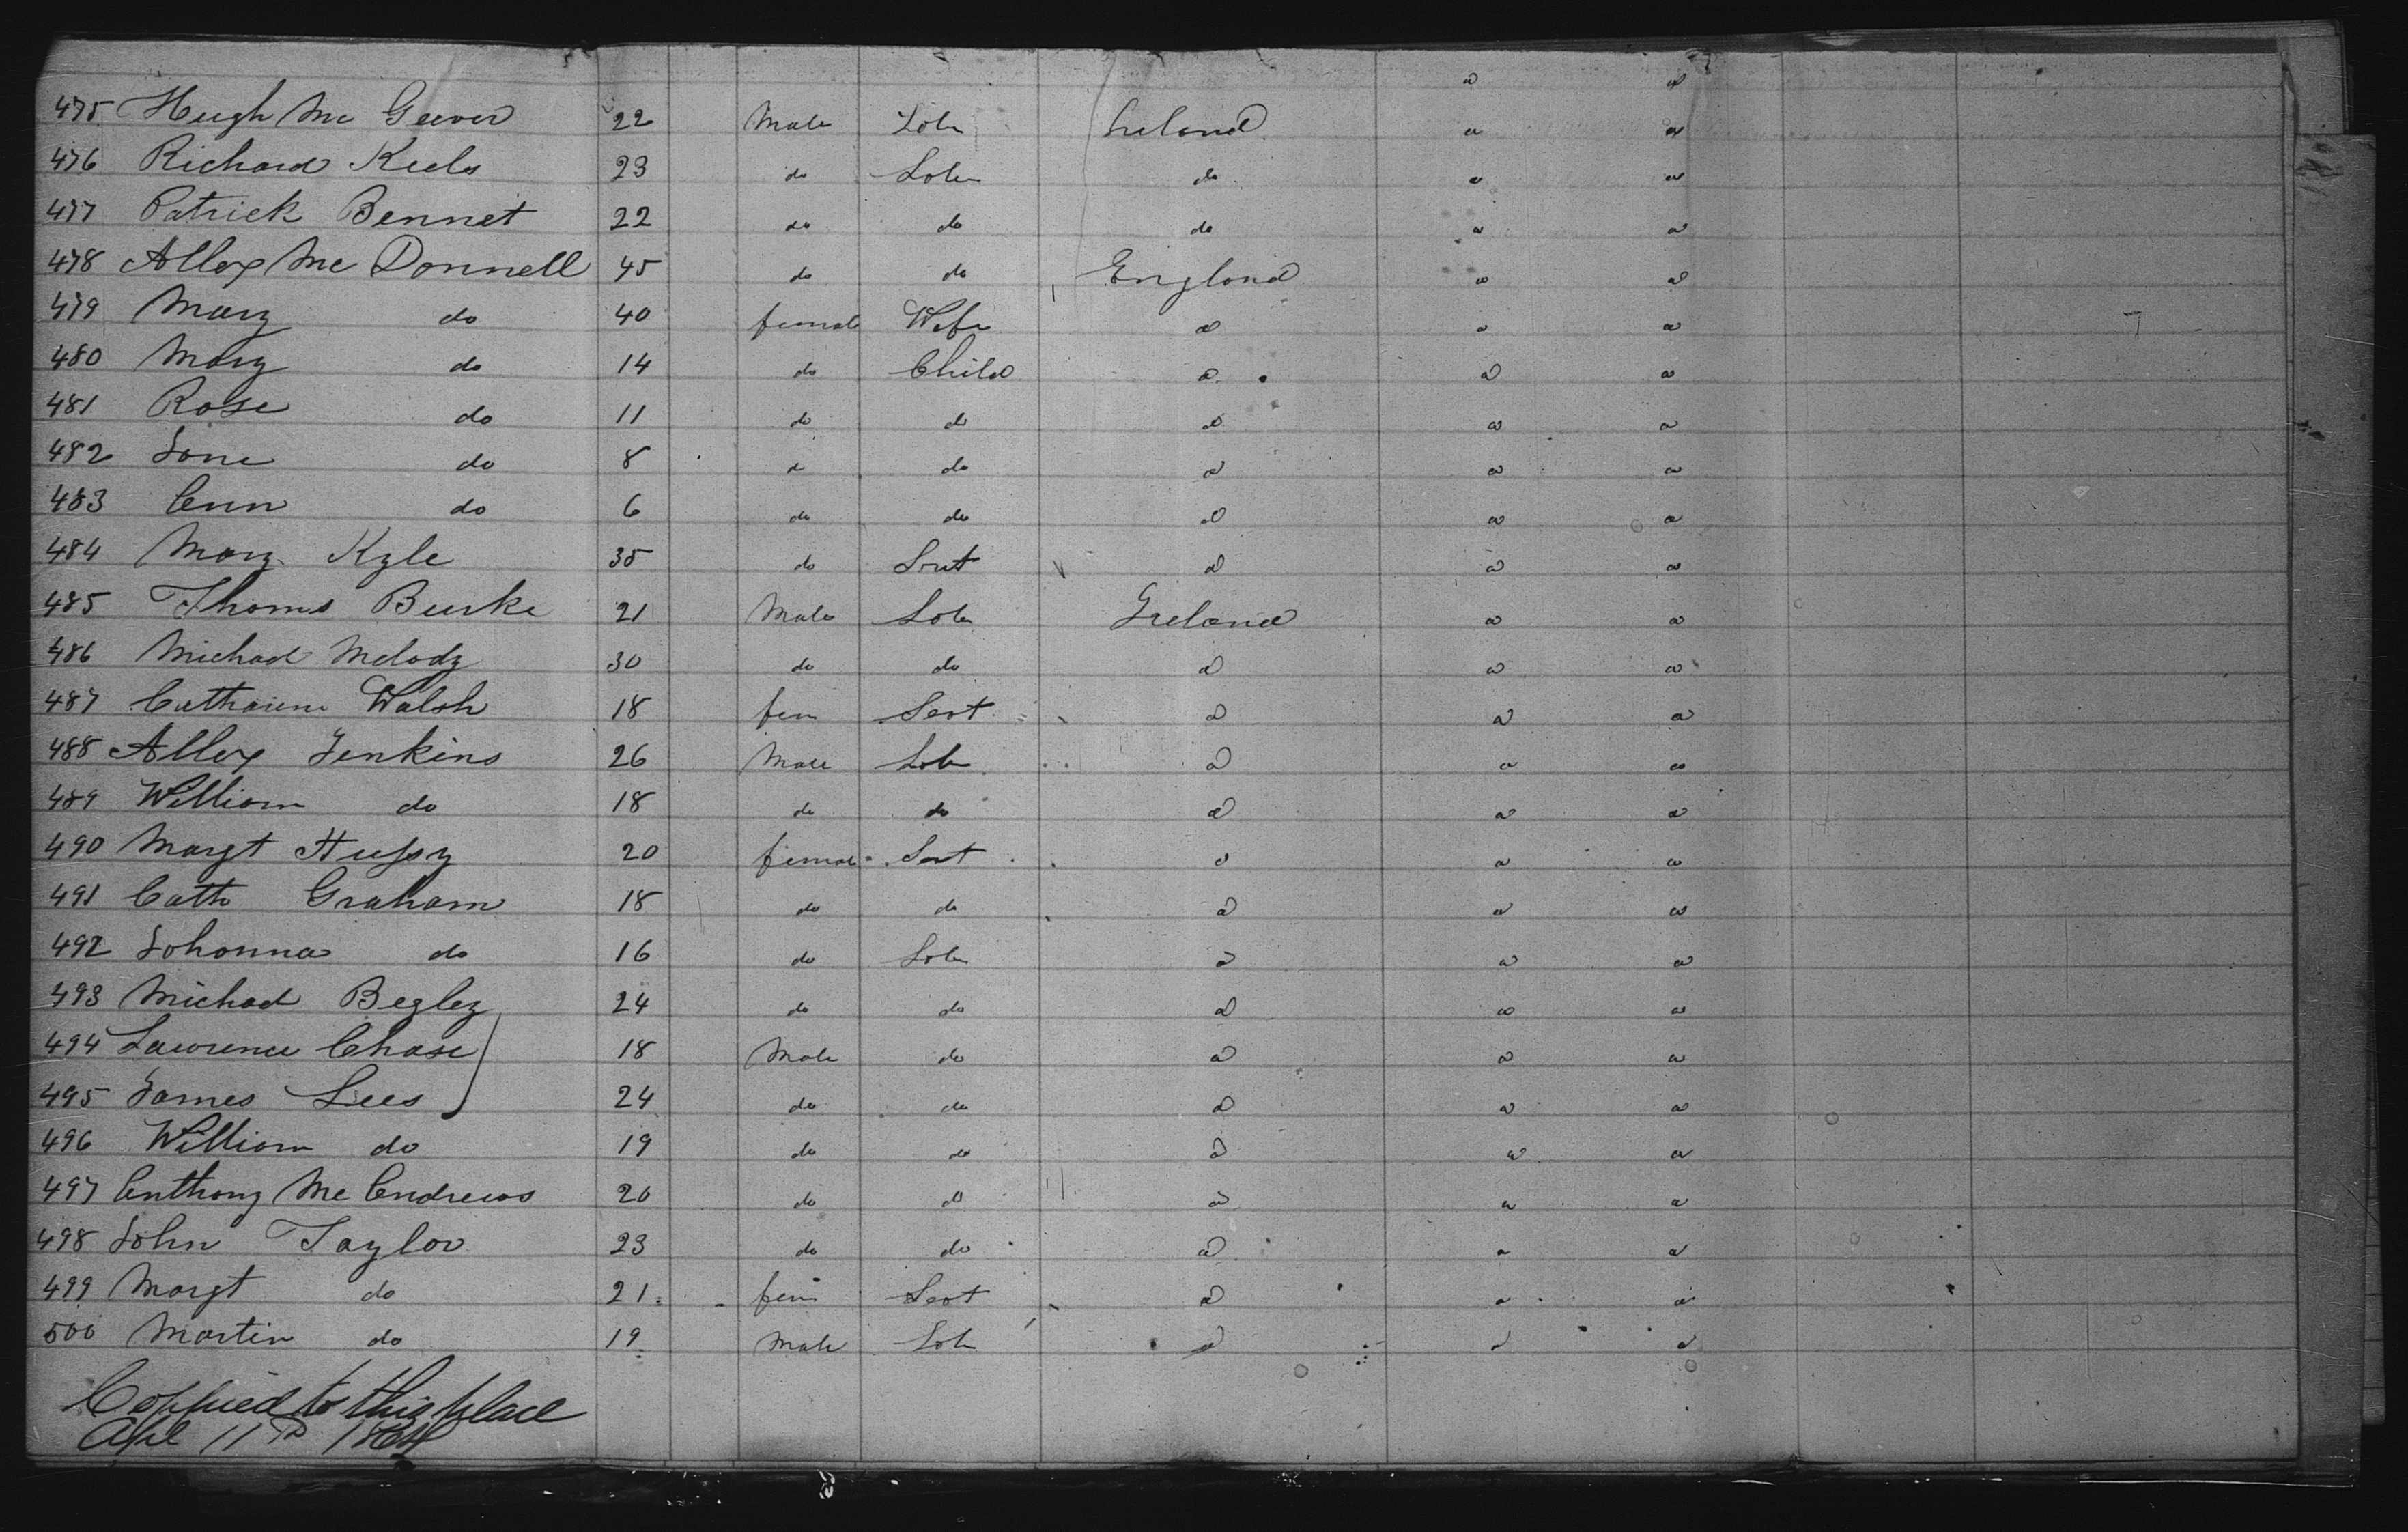 do do
475 Hugh Mc Geever 22 Male Lobr Ireland do do
476 Richard Keels 23 do Lobr do do do
477 Patrick Bennet 22 do do do do do
478 Allex Mc Donnell 45 do do England do do
479 Mary do 40 female Wife do do do
480 Mary do 14 do Child do do do
481 Rose do 11 do do do do do
482 Jane do 8 do do do do do
483 Ann do 6 do do do do do
484 Mary Kyle 35 do Srvt do do do
485 Thomas Burke 21 Male Lobr Ireland do do
486 Michael Melody 30 do do do do do
487 Catharine Walsh 18 fem Servt do do do
488 Allex Jenkins 26 Male Lobr do do do
489 William do 18 do do do do do
490 Margt Hussy 20 female Servt do do do
491 Cath Graham 18 do do do do do
492 Johanna do 16 do Lobr do do do
493 Michael Begley 24 do do do do do
494 Lawrence Chase 18 Male do do do do
495 James Lees 24 do do do do do
496 William do 19 do do do do do
497 Anthony Mc Andrews 20 do do do do do
498 John Taylor 23 do do do do do
499 Margt do 21 fem Servt do do do
500 Martin do 19 Male Lobr do do do
Coppied to this place
Apl 11th 1864